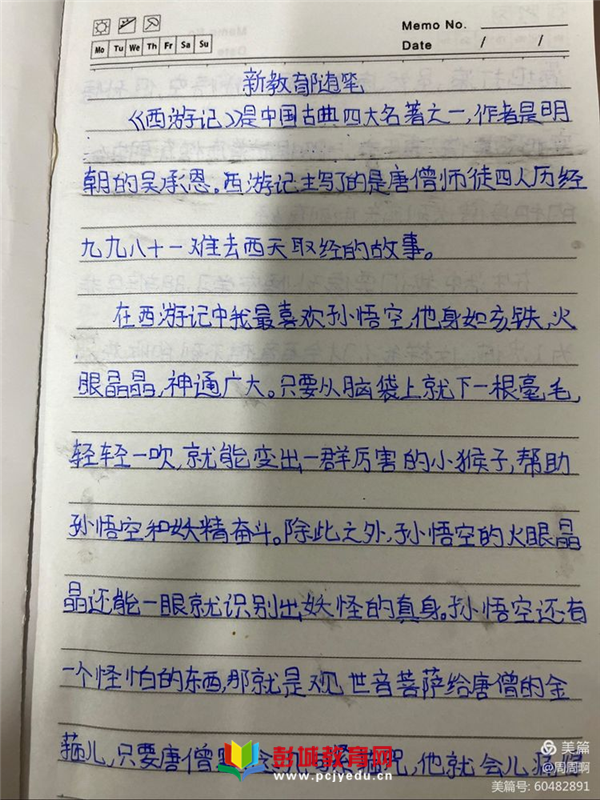 Memo No.
Mo Tu We Th Fr Sa Su
Date / /
新教育随笔
《西游记》是中国古典四大名著之一,作者是明
朝的吴承恩。西游记主写了的是唐僧师徒四人历经
九九八十一难去西天取经的故事。
在西游记中我最喜欢孙悟空,他身如玄铁,火
眼晶晶,神通广大。只要从脑袋上就下一根毫毛,
轻轻一吹,就能变出一群厉害的小猴子,帮助
孙悟空和妖精奋斗。除此之外,孙悟空的火眼晶
晶还能一眼就识别出妖怪的真身。孙悟空还有
一个怪怕的东西,那就是观世音菩萨给唐僧的金
箍儿,只要唐僧 咒,他就会儿
彭城教育网
www.pcjyedu.cn
美篇
@周周啊
美篇号: 60482891